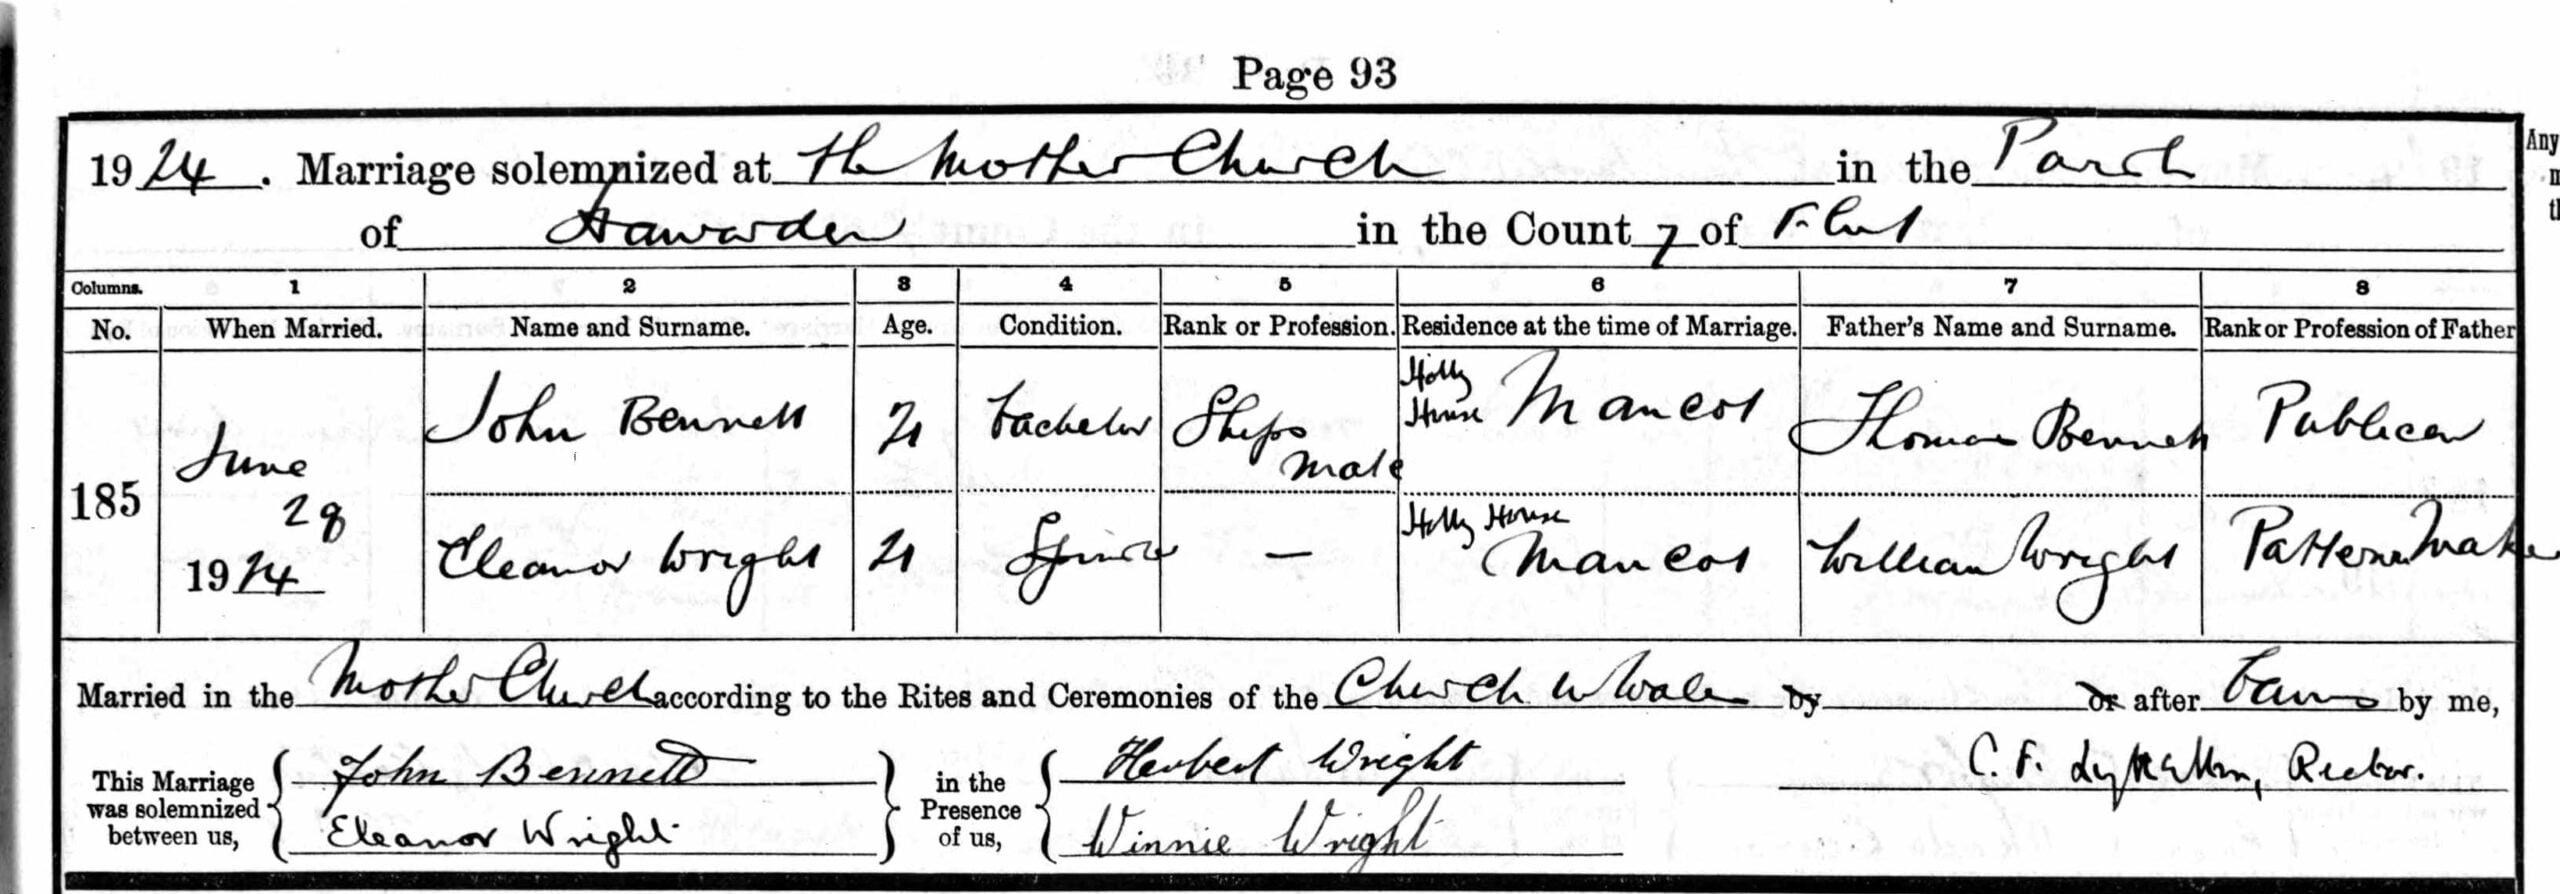 Page 93
Any
1924. Marriage solemnized at the Mother Church in the Parish
of Hawarden in the County of Flint
Columns. 1 2 3 4 5 6 7 8
No. When Married. Name and Surname. Age. Condition. Rank or Profession. Residence at the time of Marriage. Father's Name and Surname. Rank or Profession of Father
185 June 28 1924
John Bennett 21 bachelor Ships Mate Holly House Mancot Thomas Bennett Publican
Eleanor Wright 21 Spinster — Holly House Mancot William Wright Pattern Maker
Married in the Mother Church according to the Rites and Ceremonies of the Church in Wales by or after banns by me,
This Marriage was solemnized between us, John Bennett Eleanor Wright in the Presence of us, Herbert Wright Winnie Wright C. F. Rector.